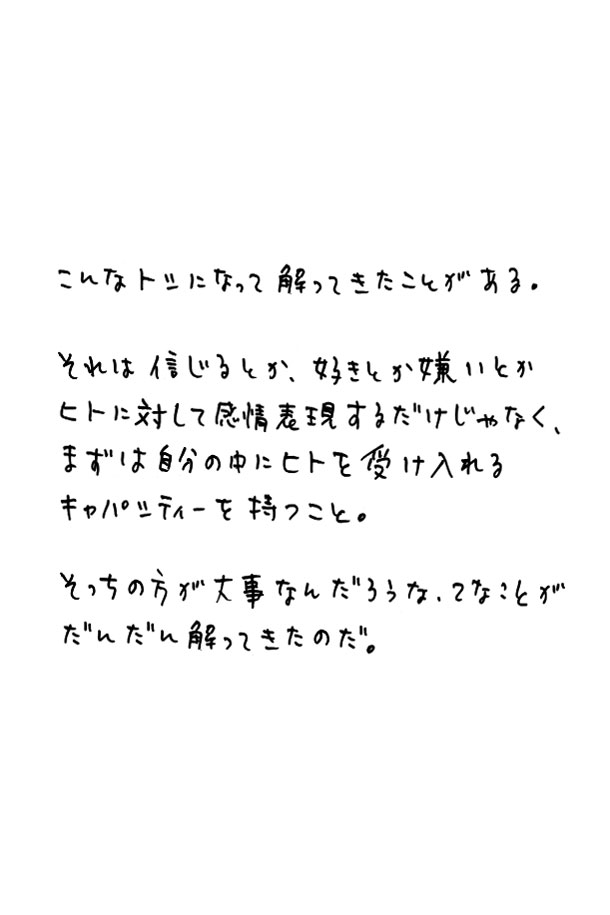 こんなトシになって解ってきたことがある。
それは信じるとか、好きとか嫌いとか
ヒトに対して感情表現するだけじゃなく、
まずは自分の中にヒトを受け入れる
キャパシティーを持つこと。
そっちの方が大事なんだろうな、てなことが
だんだん解ってきたのだ。